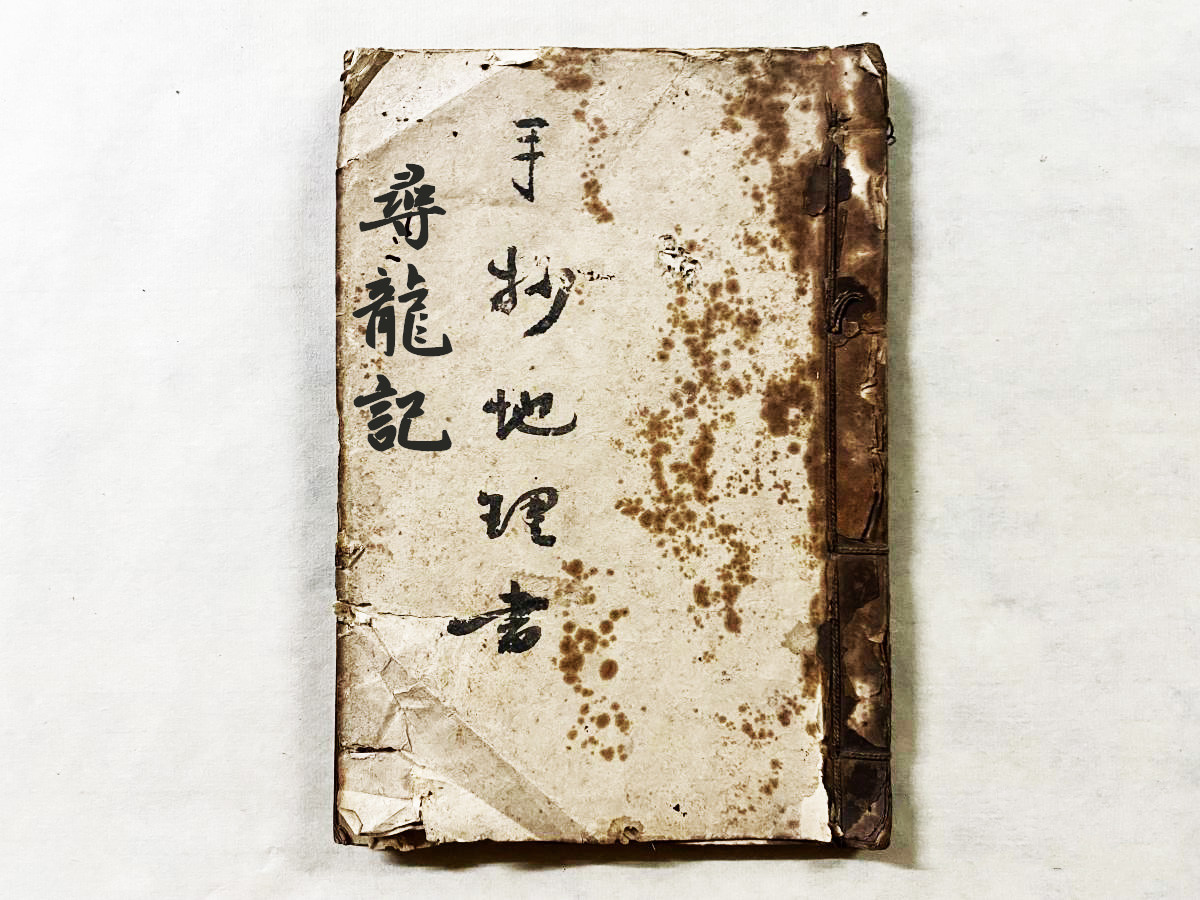 手抄地理书
尋龍記